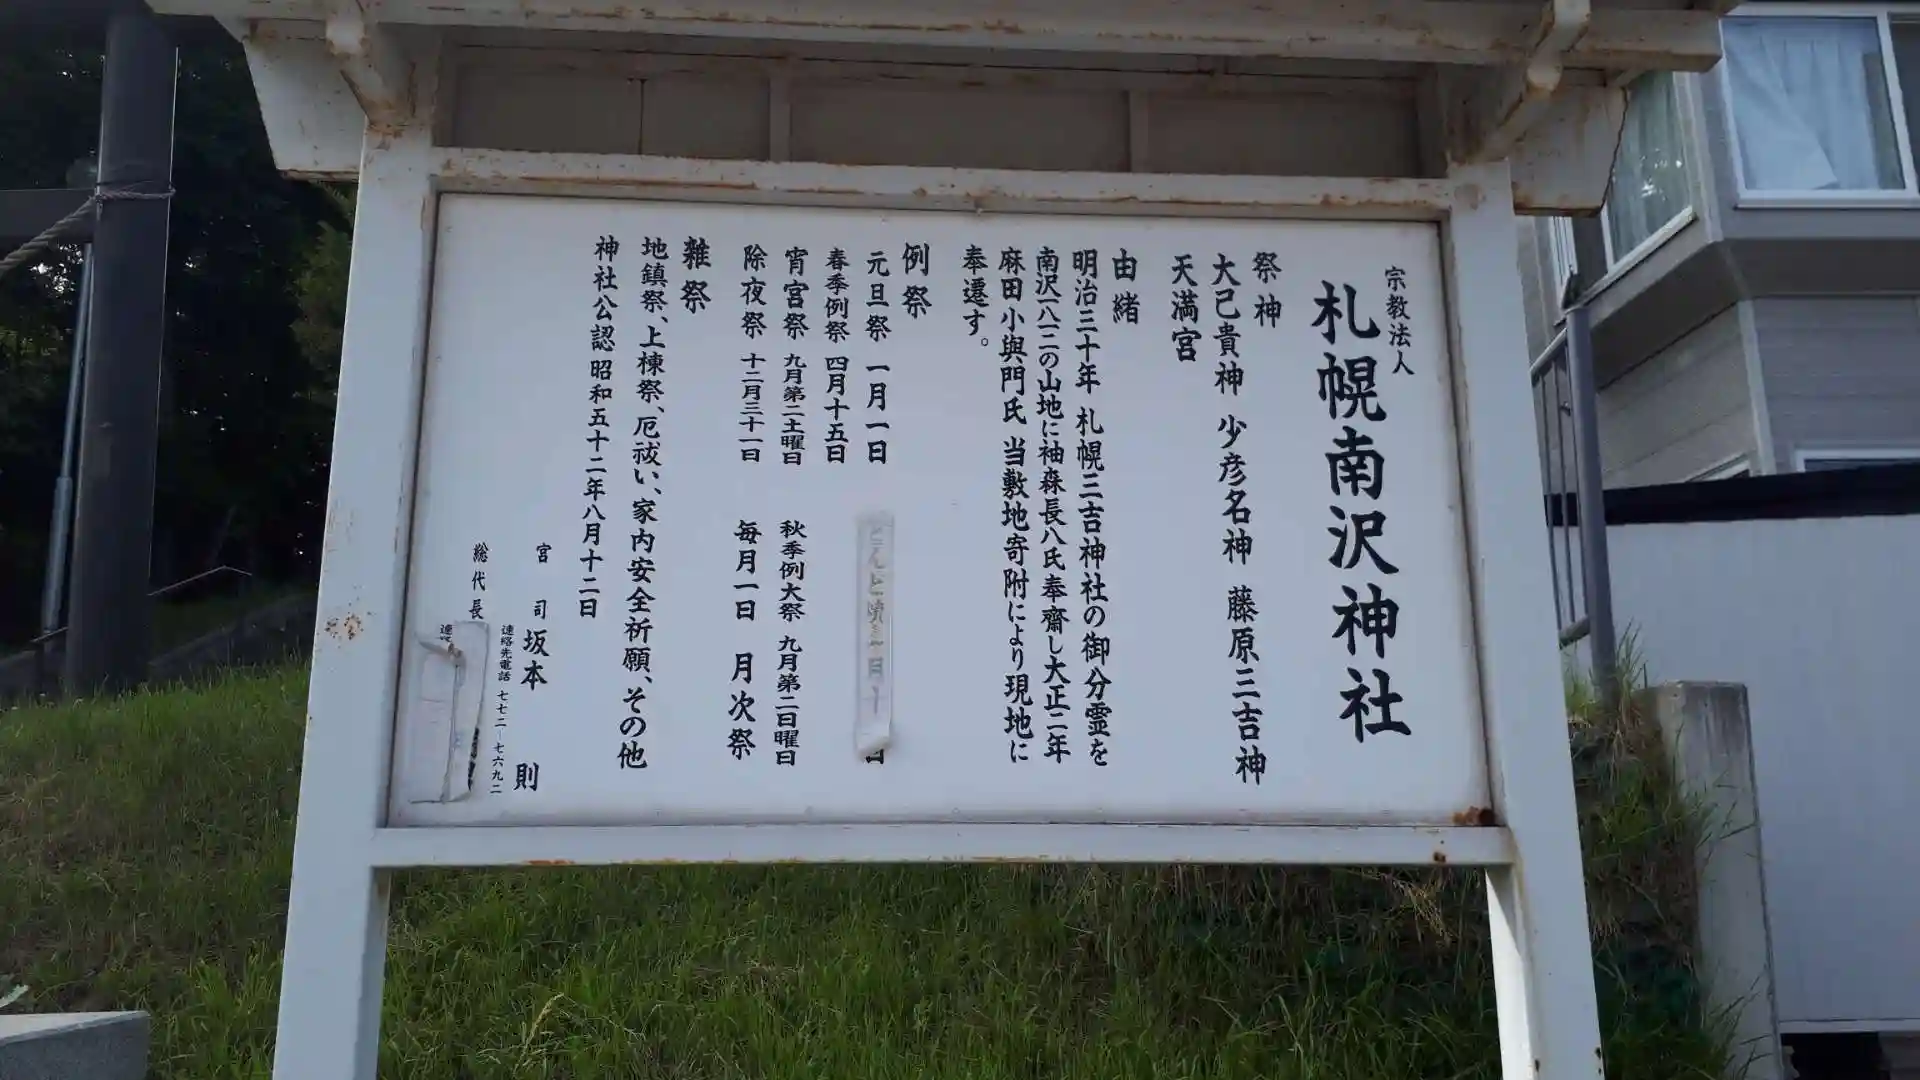 宗教法人
札幌南沢神社
祭神
大己貴神 少彦名神 藤原三吉神
天満宮
由緒
明治三十年 札幌三吉神社の御分霊を
南沢一八一二の山地に袖森長八氏奉齋し大正二年
麻田小與門氏 当敷地寄附により現地に
奉遷す。
例祭
元旦祭 一月一日
春季例祭 四月十五日
宵宮祭 九月第二土曜日 秋季例大祭 九月第二日曜日
除夜祭 十二月三十一日 毎月一日 月次祭
雑祭
地鎮祭、上棟祭、厄祓い、家内安全祈願、その他
神社公認 昭和五十二年八月十二日
宮司 坂本 則
連絡先電話 七七二-七六九二
総代長